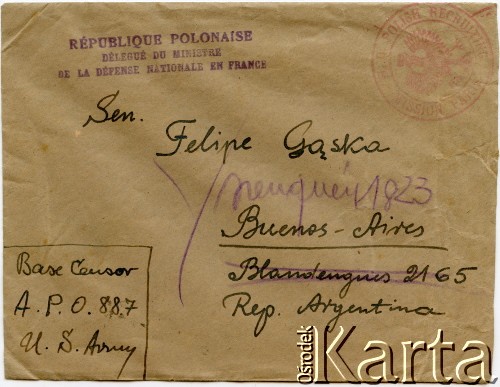 RÉPUBLIQUE POLONAISE
DÉLEGUÉ DU MINISTRE
DE LA DÉFENSE NATIONALE EN FRANCE
POLISH RECRUITING MISSION
Sen.
Felipe Gąska
Neuquén 1823
Buenos-Aires
Blandengues 2165
Rep. Argentina
Base Censor
A.P.O. 887
U.S. Army
Ośrodek
Karta